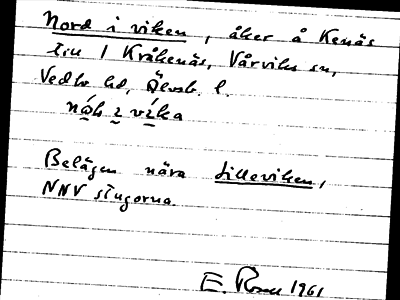 Nord i viken, åker å Kenäs
1 Kråkenäs, Vårviks sn,
Vedbo hd, Älvsb. l.
i vika
Belägen nära Lilleviken,
NNV stugorna.
E. 1961